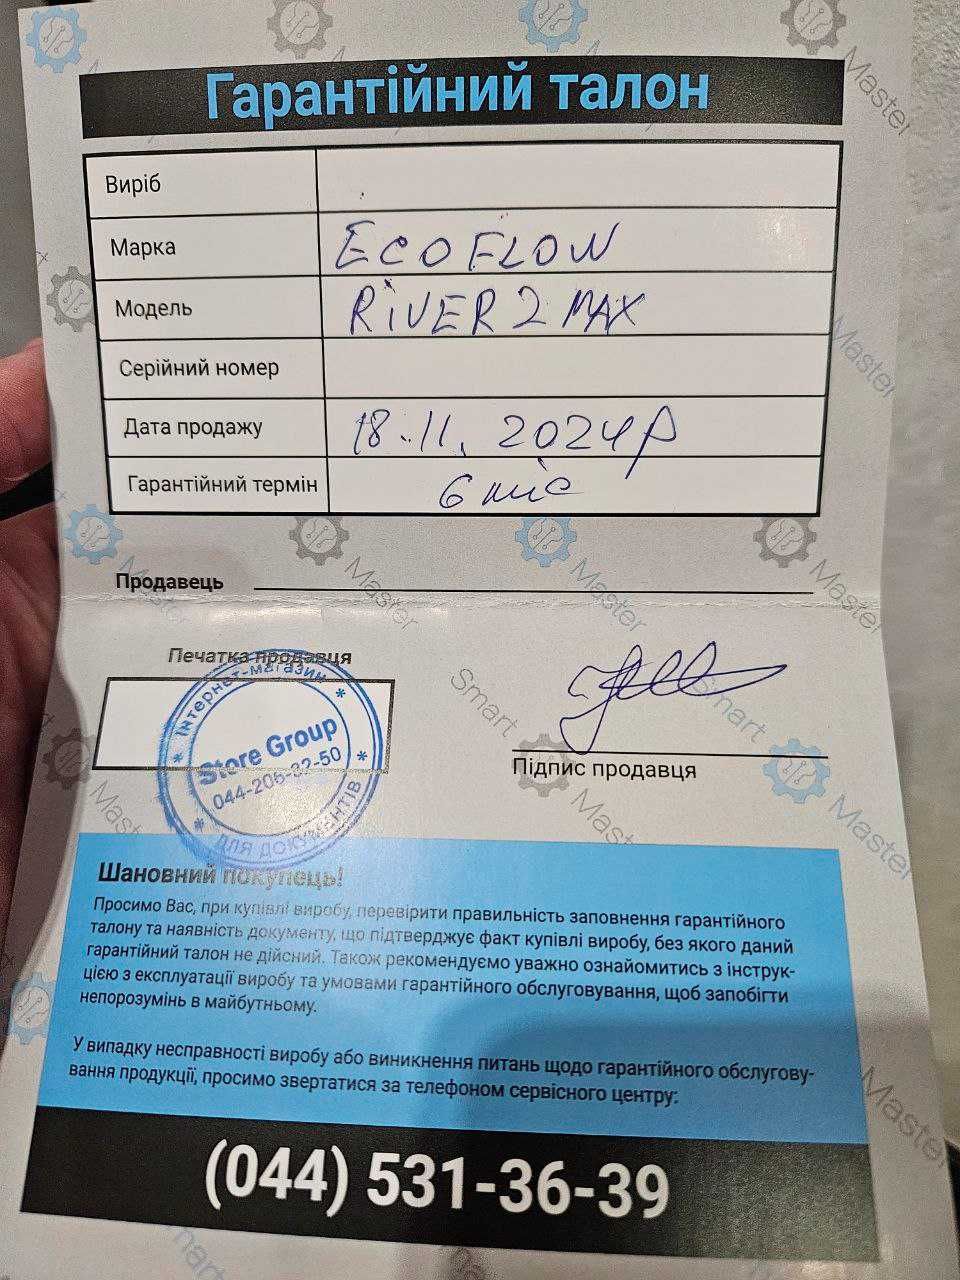 Гарантійний талон
Виріб
Марка ECOFLOW
Модель RiVER 2 MAX
Серійний номер
Дата продажу 18.11.2024р
Гарантійний термін 6 міс
Продавець
Печатка продавця
Інтернет-магазин
Store Group
044-206-32-50
ДЛЯ ДОКУМЕНТІВ
Підпис продавця
Шановний покупець!
Просимо Вас, при купівлі виробу, перевірити правильність заповнення гарантійного
талону та наявність документу, що підтверджує факт купівлі виробу, без якого даний
гарантійний талон не дійсний. Також рекомендуємо уважно ознайомитись з інструк-
цією з експлуатації виробу та умовами гарантійного обслуговування, щоб запобігти
непорозумінь в майбутньому.
У випадку несправності виробу або виникнення питань щодо гарантійного обслугову-
вання продукції, просимо звертатися за телефоном сервісного центру:
(044) 531-36-39
Smart Master